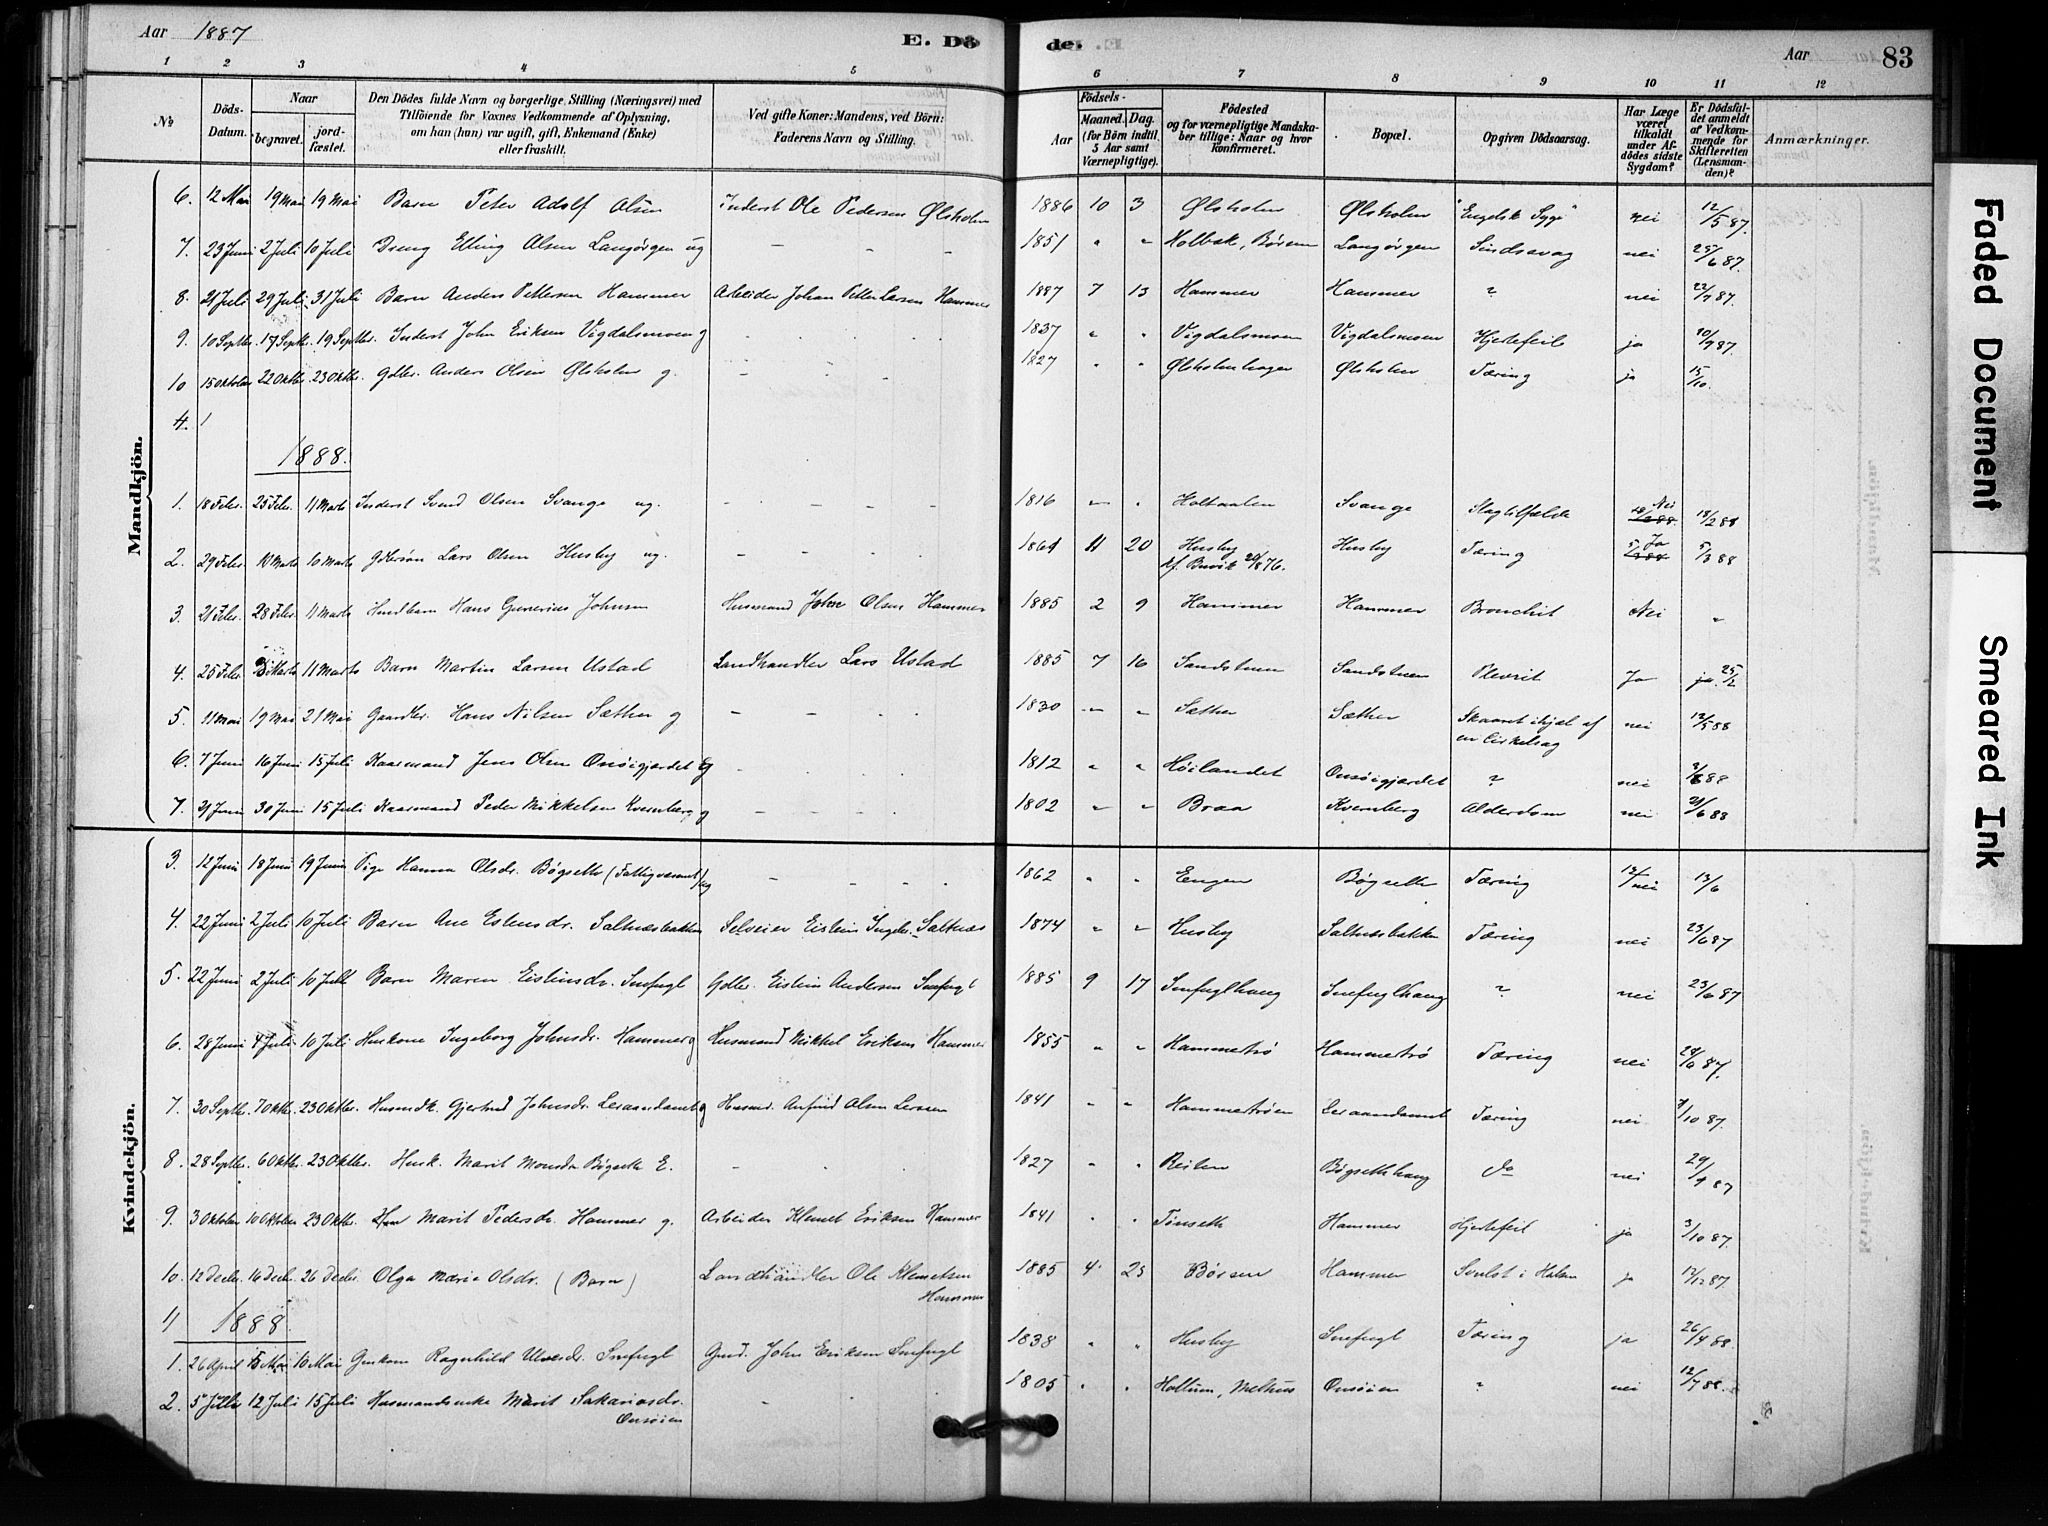 Aar 1887
E. Dö
de.
Aar
83
1 2 3 4 5 6 7 8 9 10 11 12
№
Döds-Datum.
Naar
begravet.
jord-fæstet.
Den Dödes fulde Navn og borgerlige Stilling (Næringsvei) med
Tilföiende for Voxnes Vedkommende af Oplysning,
om han (hun) var ugift, gift, Enkemand (Enke)
eller fraskilt.
Ved gifte Koner: Mandens, ved Börn:
Faderens Navn og Stilling.
Födsels-
Aar
Maaned. Dag.
(for Börn indtil
5 Aar samt
Værnepligtige).
Födested
og for værnepligtige Mandska-
ber tillige: Naar og hvor
Konfirmeret.
Bopæl.
Opgiven Dödsaarsag.
Har Læge
været
tilkaldt
under Af-
dödes sidste
Sygdom?
Er Dödsfal-
det anmeldt
af Vedkom-
mende for
Skifteretten
(Lensman-
den)?
Anmærkninger.
Mandkjön.
6. 12 Mai 19 Mai 19 Mai Barn Peter Adolf Olsen Inderst Ole Pedersen Ølsholm 1886 10 3 Ølsholm Ølsholm "Engelsk Syge" nei 12/5 87.
7. 23 Juni 2 Juli 10 Juli Dreng Elling Olsen Langørgen ug - - - 1851 " " Holbak, Børsen Langørgen Sindssvag nei 25/6 87.
8. 21 Juli 29 Juli 31 Juli Barn Anders Pettersen Hammer Arbeider Johan Petter Larsen Hammer 1887 7 13 Hammer Hammer ? nei 22/7 87.
9. 10 Septbr. 17 Septbr. 19 Septbr. Inderst John Eriksen Vigdalsmoen g - - - 1837 " " Vigdalsmoen Vigdalsmoen Hjertefeil ja 10/9 87.
10 15 Oktober 22 Oktbr. 23 Oktbr. Gdbr. Anders Olsen Ølsholm g. - - - 1827 " " Ølsholmhagen Ølsholm Tæring ja 15/10.
4. 1
1888.
1. 18 Febr. 25 Febr. 11 Marts Inderst Svend Olsen Svange ug. - - - 1816 " " Holtaalen Svange Slagtilfælde Nei 18/2 88
2. 29 Febr. 10 Marts 10 Marts Gdbrsøn Lars Olsen Husby ug. - - - 1861 11 20 Husby Husby Tæring Ja 5/3 88
kf. Buvik 20/8 76.
3. 21 Febr. 28 Febr. 11 Marts Husdbarn Hans Gunerius Johnsen Husmand John Olsen Hammer 1885 2 9 Hammer Hammer Bronchit Nei "
4. 25 Febr. 3 Marts 11 Marts Barn Martin Larsen Ustad Landhandler Lars Ustad 1885 7 16 Sandstuen Sandstuen Plevrit Ja ja. 25/2
5. 11 Mai 19 Mai 21 Mai Gaardbr. Hans Nilsen Sæther g - - - 1830 " " Sæther Sæther Skaaret ihjel af nei 12/5 88
en Cirkelsag
6. 7 Juni 16 Juni 15 Juli Kaarmand Jens Olsen Onsøigjærdet g - - - 1812 " " Høilandet Onsøigjærdet ? nei 7/6 88
7. 21 Juni 30 Juni 15 Juli Kaarmand Peder Mikkelsen Kvernberg g - - - 1802 " " Braa Kvernberg Alderdom nei 21/6 88
Kvindekjön.
3. 12 Juni 18 Juni 19 Juni Pige Hanna Olsdr. Bøgseth (Fattigvæsenet) ug - - - 1862 " " Engen Bøgseth Tæring nei 13/6
4. 22 Juni 2 Juli 10 Juli Barn Ane Estensdr. Saltnæsbakken Selveier Eistein Ingebr. Saltnæs 1874 " " Husby Saltnæsbakken Tæring nei 23/6 87
5. 22 Juni 2 Juli 10 Juli Barn Maren Eistensdr. Snefugl Gdbr. Eistein Andersen Snefugl 1885 9 17 Snefuglhaug Snefuglhaug ? nei 23/6 87
6. 28 Juni 4 Juli 10 Juli Huskone Ingeborg Johnsdr. Hammer g Husmand Mikkel Eriksen Hammer 1855 " " Hammertrø Hammertrø Tæring nei 87.
7. 30 Septbr. 7 Oktbr. 23 Oktbr. Husmdk. Gjertrud Johnsdr. Leraandamet g Husmd. Anfind Olsen 1841 " " Hammertrøen Leraandamet Tæring nei 1/10 87.
8. 28 Septbr. 6 Oktbr. 23 Oktbr. Husk. Marit Monsdr. Bøgseth E. - - - 1827 " " Reiten Bøgsethhaug do nei 29/9 87
9. 3 Oktober 10 Oktober 23 Oktbr. Marit Pedersdr. Hammer g. Arbeider Klemet Eriksen Hammer 1841 " " Tønseth Hammer Hjertefeil ja 3/10 87.
10. 12 Decbr. 16 Decbr. 26 Decbr. Olga Marie Olsdr. (Barn) Landhandler Ole Klemetsen 1885 4 25 Børsen Hammer Svulst i Halsen ja 12/12 87.
Hammer
11 1888.
1. 26 April 5 Mai 10 Mai Gmkone Ragnhild Snefugl Gmd. John Eriksen Snefugl 1838 " " Husby Snefugl Tæring ja 26/4 88.
2. 5 Juli 12 Juli 15 Juli Husmandsenke Marit Sakariasdr. - - - 1805 " " Hollum, Melhus Onsøien ? nei 12/7 88.
Onsøien
Faded Document
Smeared Ink